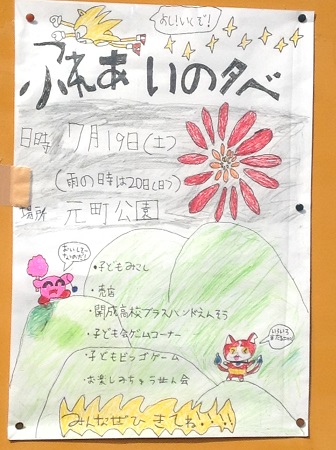 よし!いくで!
ふれあいの夕べ
日時 7月19日(土)
(雨の時は20日(日))
場所 元町公園
・子どもみこし
・売店
・開成高校ブラスバンドえんそう
・子ども会ゲームコーナー
・子どもビンゴゲーム
・お楽しみちゅうせん会
みんなぜひきてね!!!!